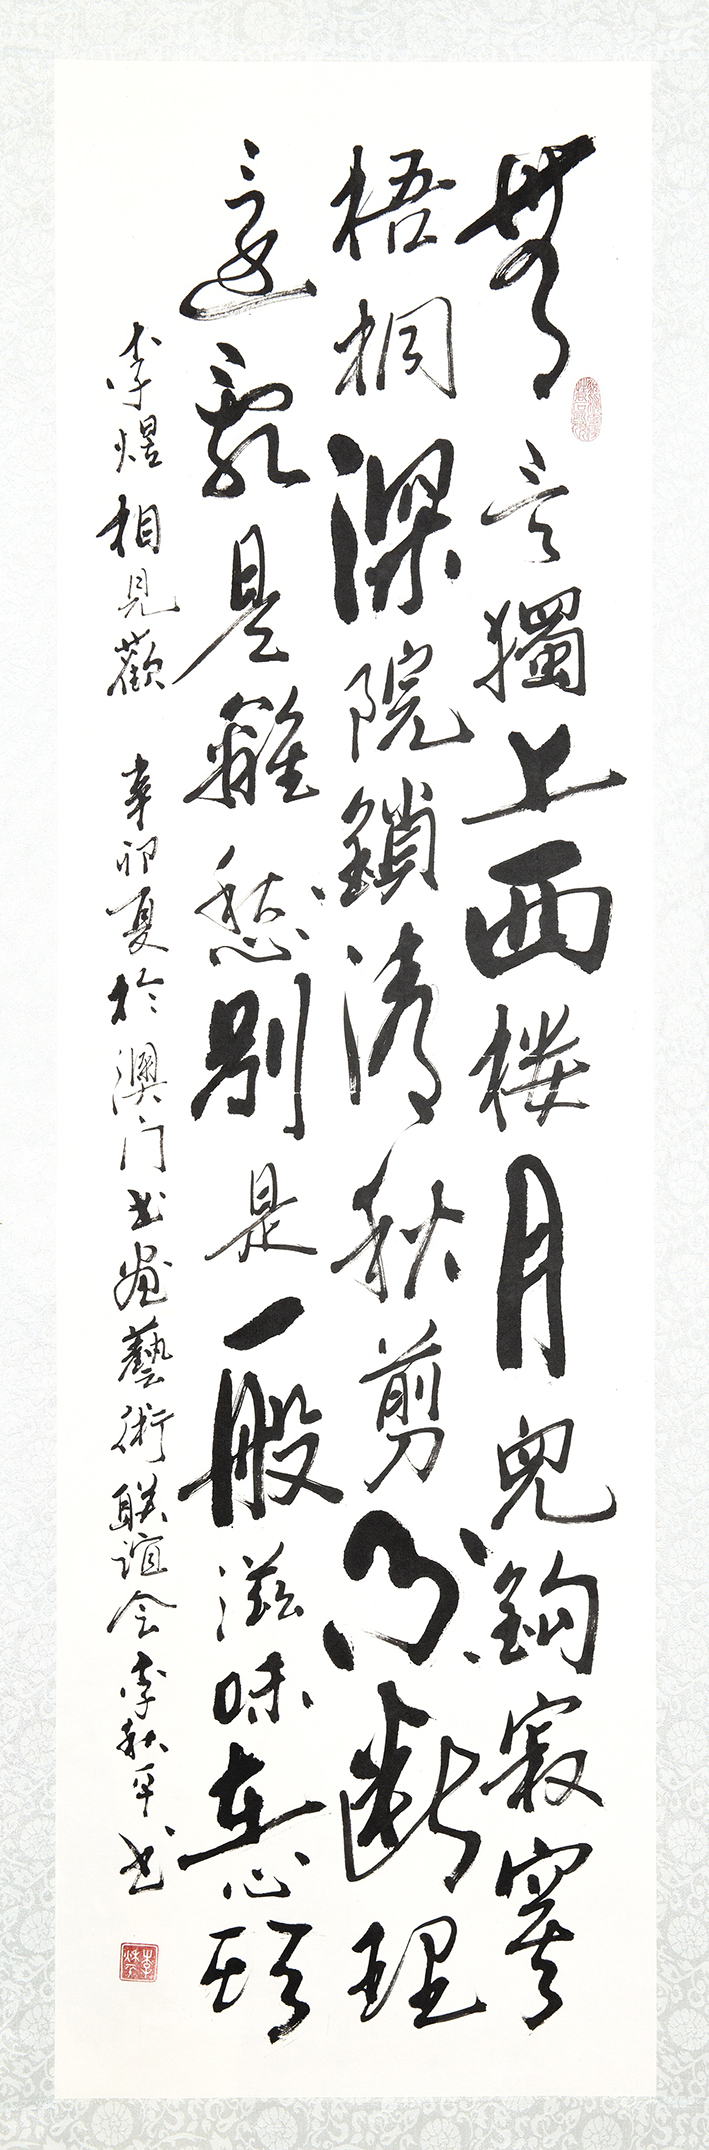 無言獨上西楼月兒鈎寂寞
梧桐深院鎖清秋剪不斷理
還亂是離愁別是一般滋味在心頭
李煜相見歡 辛卯夏於澳门书画藝術联谊会李秋平书